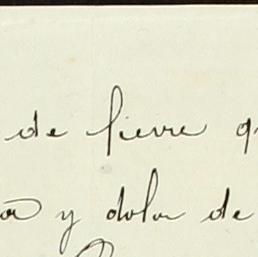 de fievre q
a y dolor de